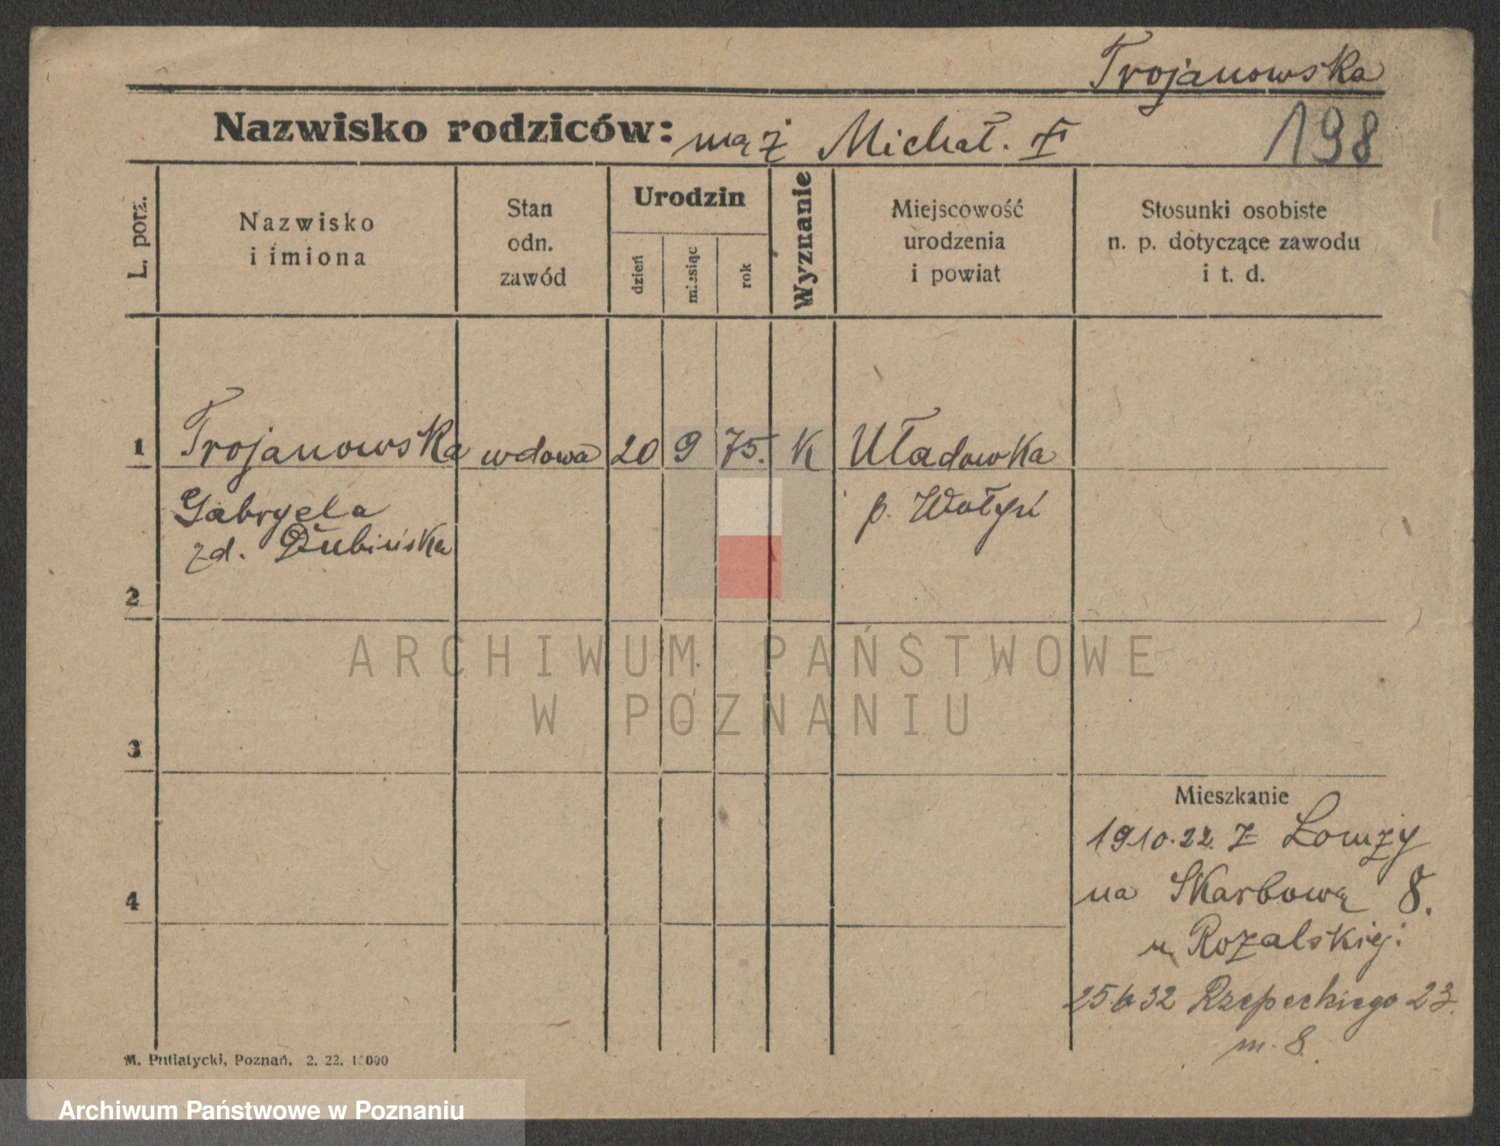 Trojanowska
Nazwisko rodziców: mąż Michał. 198
L. porz.
Nazwisko
i imiona
Stan
odn.
zawód
Urodzin
dzień
miesiąc
rok
Wyznanie
Miejscowość
urodzenia
i powiat
Stosunki osobiste
n. p. dotyczące zawodu
i t. d.
1 Trojanowska wdowa 20 9 75. K Uładowka
Gabryela p. Wołyń
zd. Dubińska
2
ARCHIWUM PAŃSTWOWE
W POZNANIU
3
Mieszkanie
19.10.22. z Łomży
4 na Skarbową 8.
u Rozalskiej.
25 6 32 Rzepeckiego 23.
m. 8.
M. Putiatycki, Poznań. 2. 22.
Archiwum Państwowe w Poznaniu